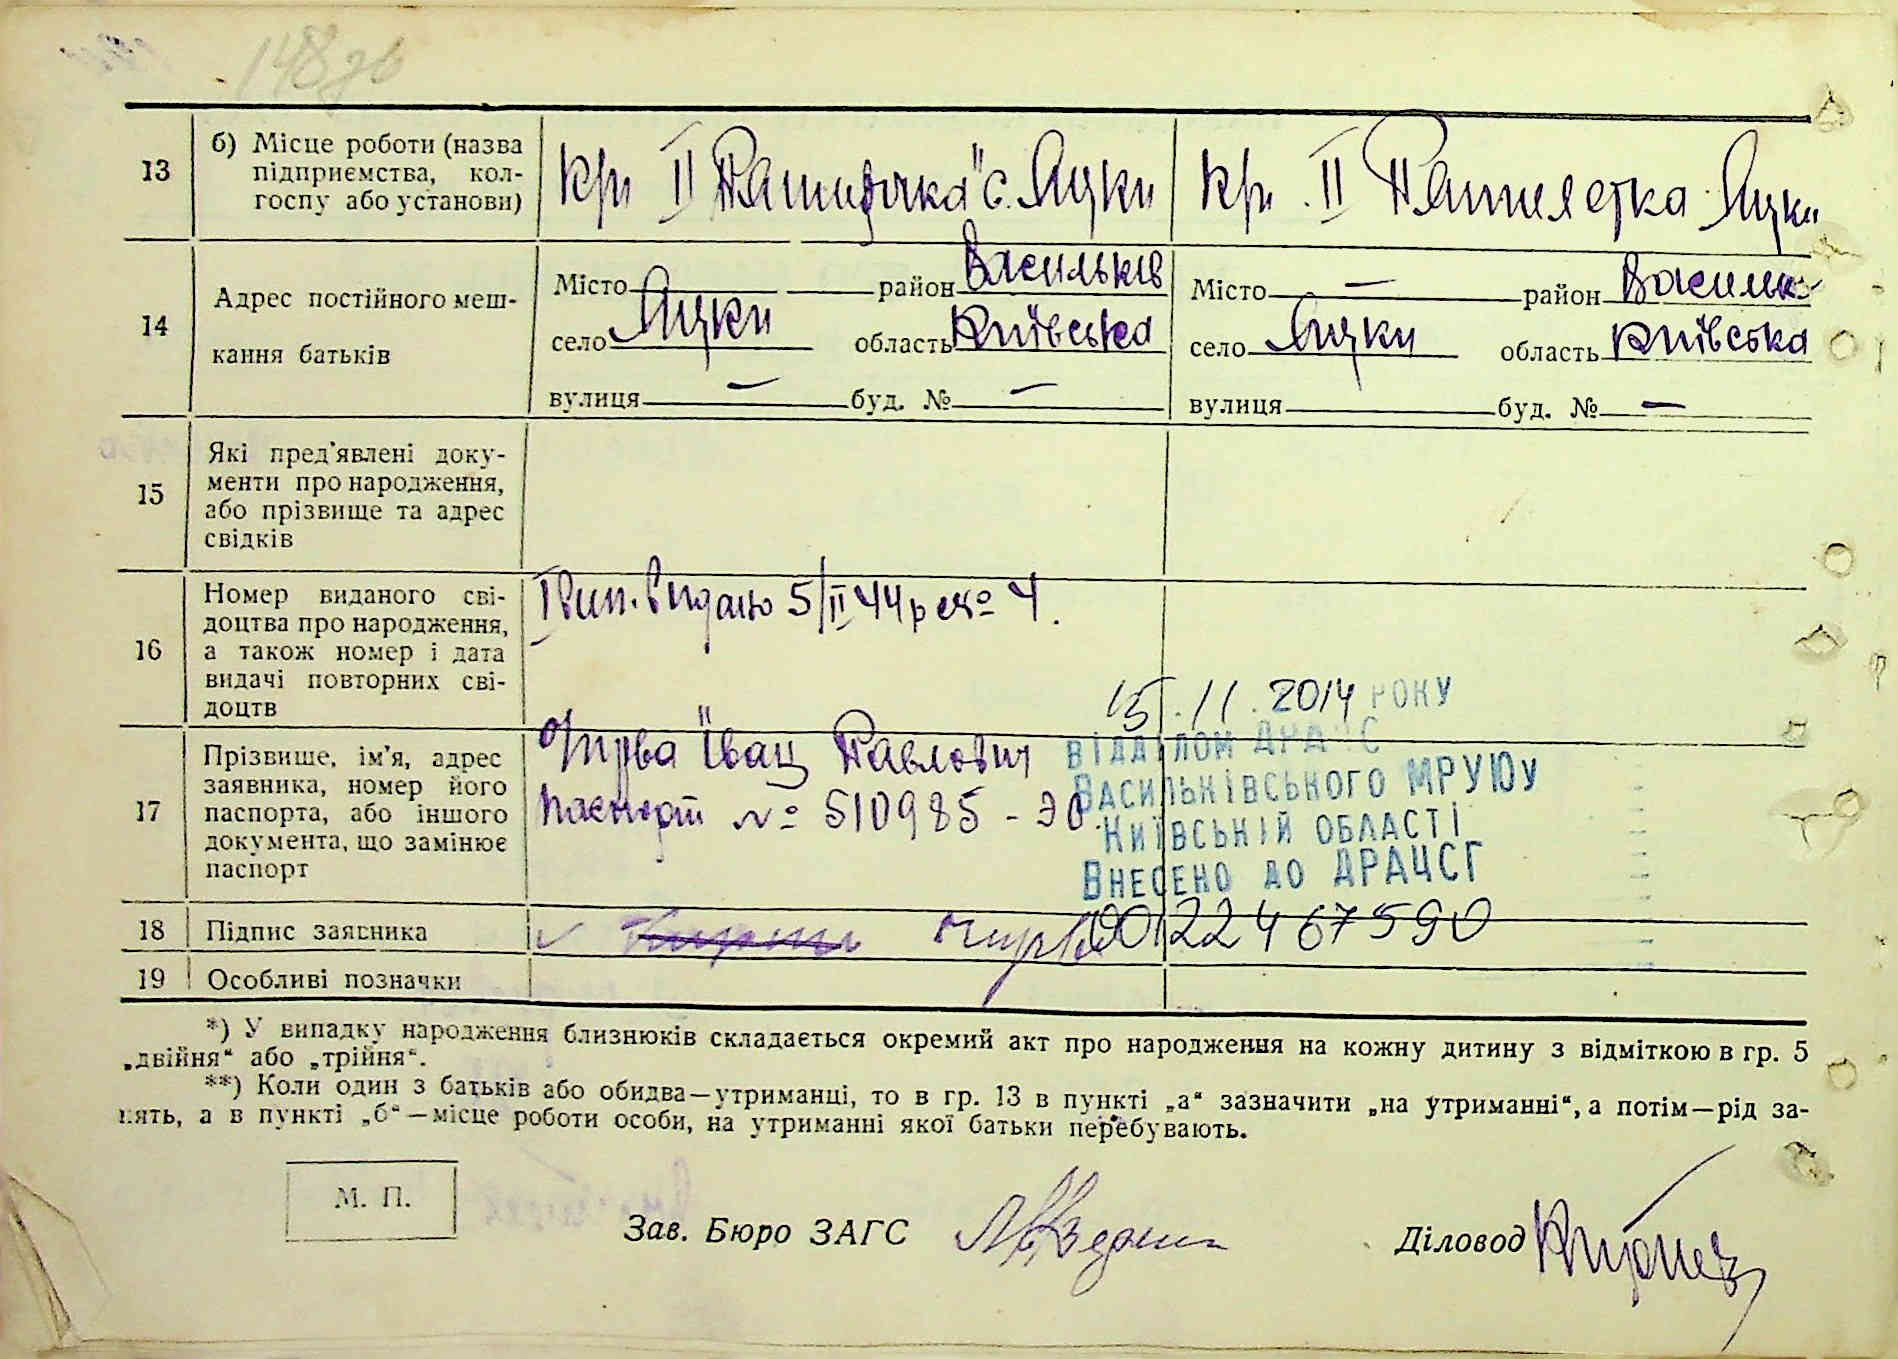 148зв
13 б) Місце роботи (назва
підприємства, кол-
госпу або установи)
II П'ятирічка" с. Яцки
II П'ятилєтка Яцки
14 Адрес постійного меш-
кання батьків
Місто район Васильків
село Яцки область Київська
вулиця — буд. № —
Місто — район Васильк.
село Яцки область Київська
вулиця буд. № —
15 Які пред'явлені доку-
менти про народження,
або прізвище та адрес
свідків
16 Номер виданого сві-
доцтва про народження,
а також номер і дата
видачі повторних сві-
доцтв
видано 5/II 44р № 4.
15.11.2014 РОКУ
ВІДДІЛОМ ДРАЦС
ВАСИЛЬКІВСЬКОГО МРУЮУ
КИЇВСЬКІЙ ОБЛАСТІ
ВНЕСЕНО ДО ДРАЦСГ
00122467590
17 Прізвище, ім'я, адрес
заявника, номер його
паспорта, або іншого
документа, що замінює
паспорт
Іван Павлович
паспорт № 510985 - ЭО.
18 Підпис заявника
19 Особливі позначки
*) У випадку народження близнюків складається окремий акт про народження на кожну дитину з відміткою в гр. 5
„двійня“ або „трійня“.
**) Коли один з батьків або обидва—утриманці, то в гр. 13 в пункті „а“ зазначити „на утриманні“, а потім—рід за-
нять, а в пункті „б“—місце роботи особи, на утриманні якої батьки перебувають.
М. П.
Зав. Бюро ЗАГС
Діловод